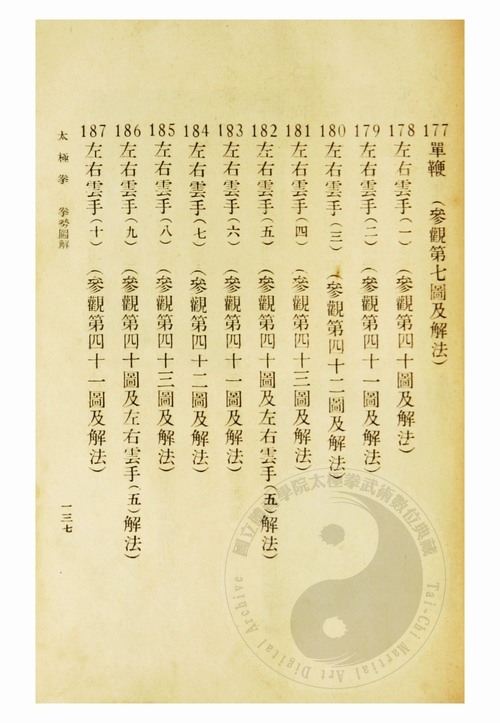 177 單鞭 (參觀第七圖及解法)
178 左右雲手(一) (參觀第四十圖及解法)
179 左右雲手(二) (參觀第四十一圖及解法)
180 左右雲手(三) (參觀第四十二圖及解法)
181 左右雲手(四) (參觀第四十三圖及解法)
182 左右雲手(五) (參觀第四十圖及左右雲手(五)解法)
183 左右雲手(六) (參觀第四十一圖及解法)
184 左右雲手(七) (參觀第四十二圖及解法)
185 左右雲手(八) (參觀第四十三圖及解法)
186 左右雲手(九) (參觀第四十圖及左右雲手(五)解法)
187 左右雲手(十) (參觀第四十一圖及解法)
太極拳 拳勢圖解
一三七
學院太極拳武術數位典藏
Tai-Chi Martial Art Digital Archive